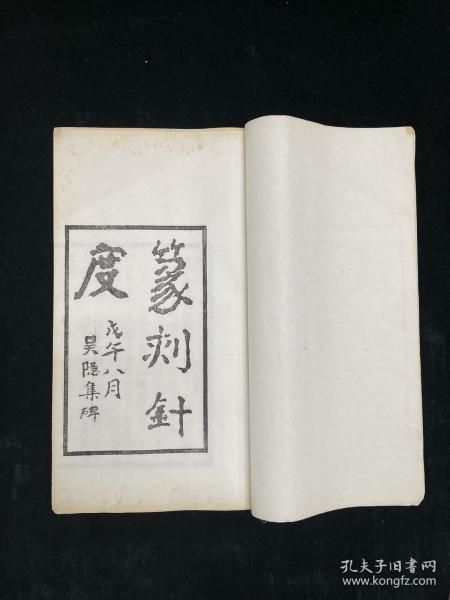 篆刻針
度
戊午八月
吴隐集碑
孔夫子旧书网
www.kongfz.com